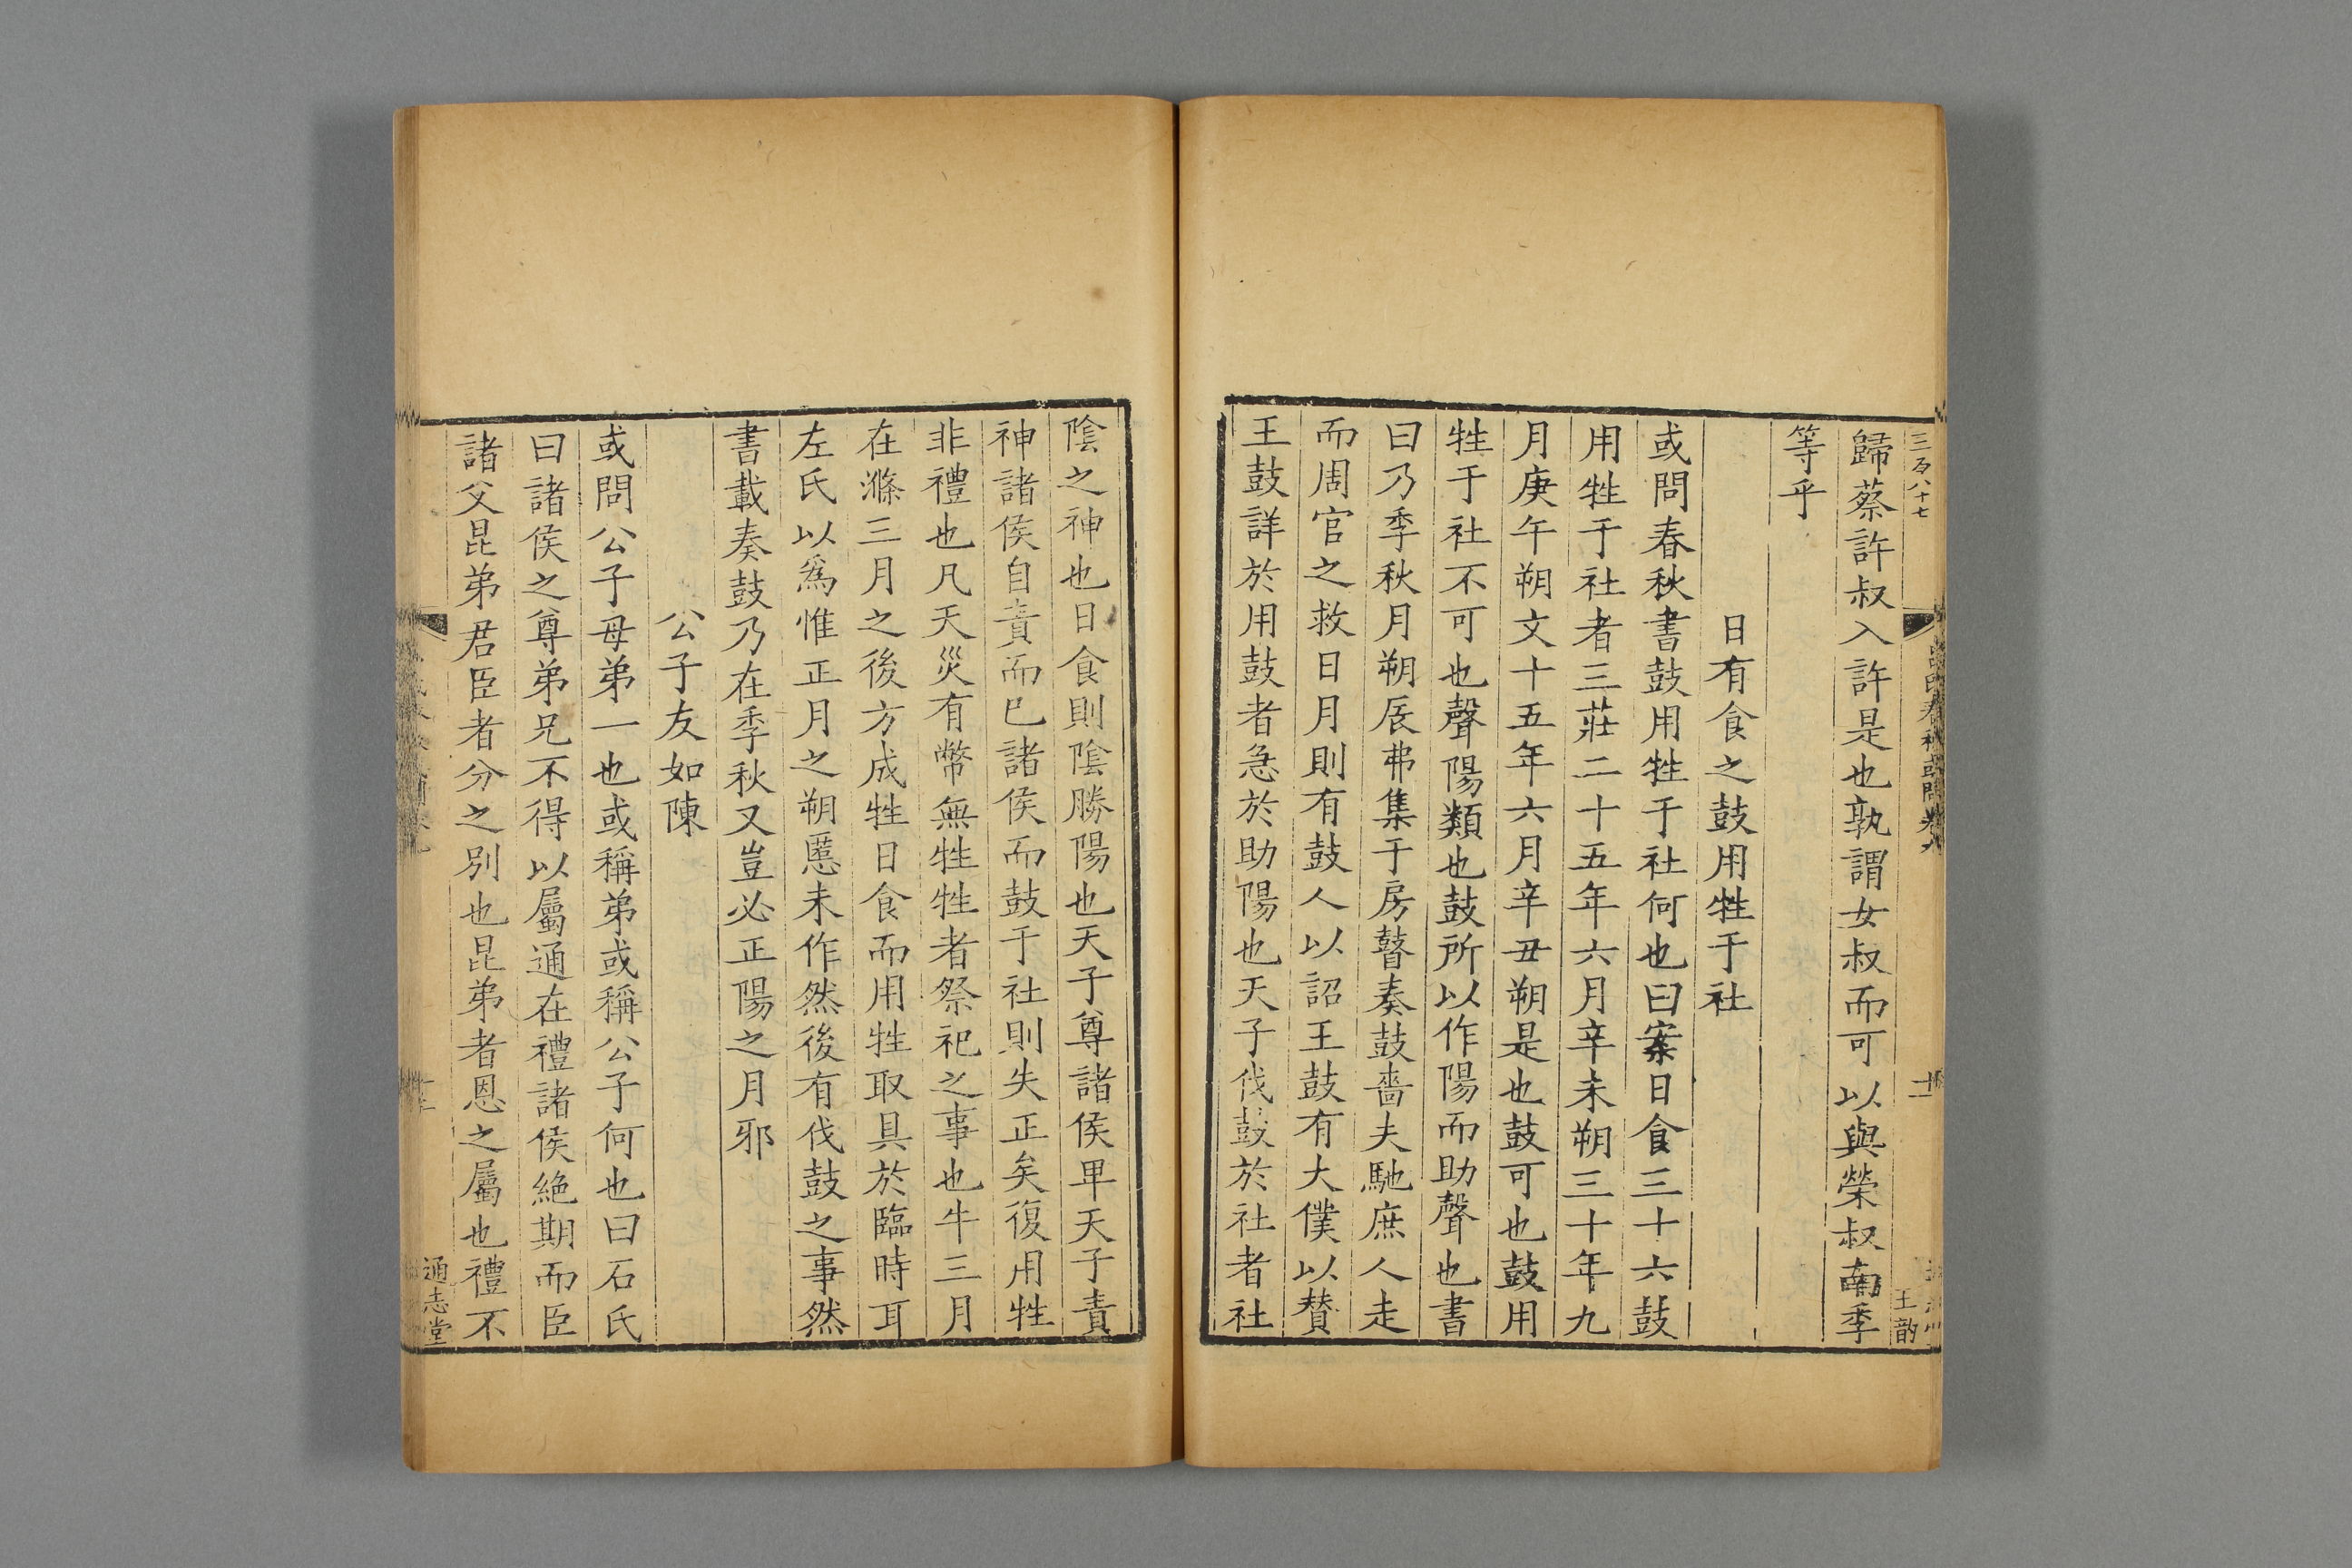 三百八十七
歸蔡許叔入許是也孰謂女叔而可以與榮叔南季
等乎
日有食之鼓用牲于社
或問春秋書鼓用牲于社何也曰案日食三十六鼓
用牲于社者三莊二十五年六月辛未朔三十年九
月庚午朔文十五年六月辛丑朔是也鼓可也鼓用
牲于社不可也聲陽類也鼓所以作陽而助聲也書
曰乃季秋月朔辰弗集于房瞽奏鼓嗇夫馳庶人走
而周官之救日月則有鼓人以詔王鼓有大僕以贊
王鼓詳於用鼓者急於助陽也天子伐鼓於社者社
陰之神也日食則陰勝陽也天子尊諸侯卑天子責
神諸侯自責而已諸侯而鼓于社則失正矣復用牲
非禮也凡天災有幣無牲牲者祭祀之事也牛三月
在滌三月之後方成牲日食而用牲取具於臨時耳
左氏以爲惟正月之朔慝未作然後有伐鼓之事然
書載奏鼓乃在季秋又豈必正陽之月邪
公子友如陳
或問公子母弟一也或稱弟或稱公子何也曰石氏
曰諸侯之尊弟兄不得以屬通在禮諸侯絶期而臣
諸父昆弟君臣者分之別也昆弟者恩之屬也禮不
通志堂